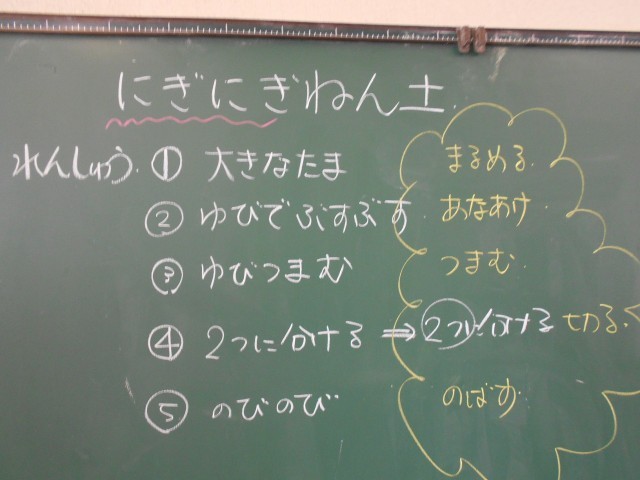 にぎにぎねん土
れんしゅう ① 大きなたま まるめる
② ゆびでぶすぶす あなあけ
③ ゆびつまむ つまむ
④ 2つに分ける ⇒ 2つに分ける 切る
⑤ のびのび のばす